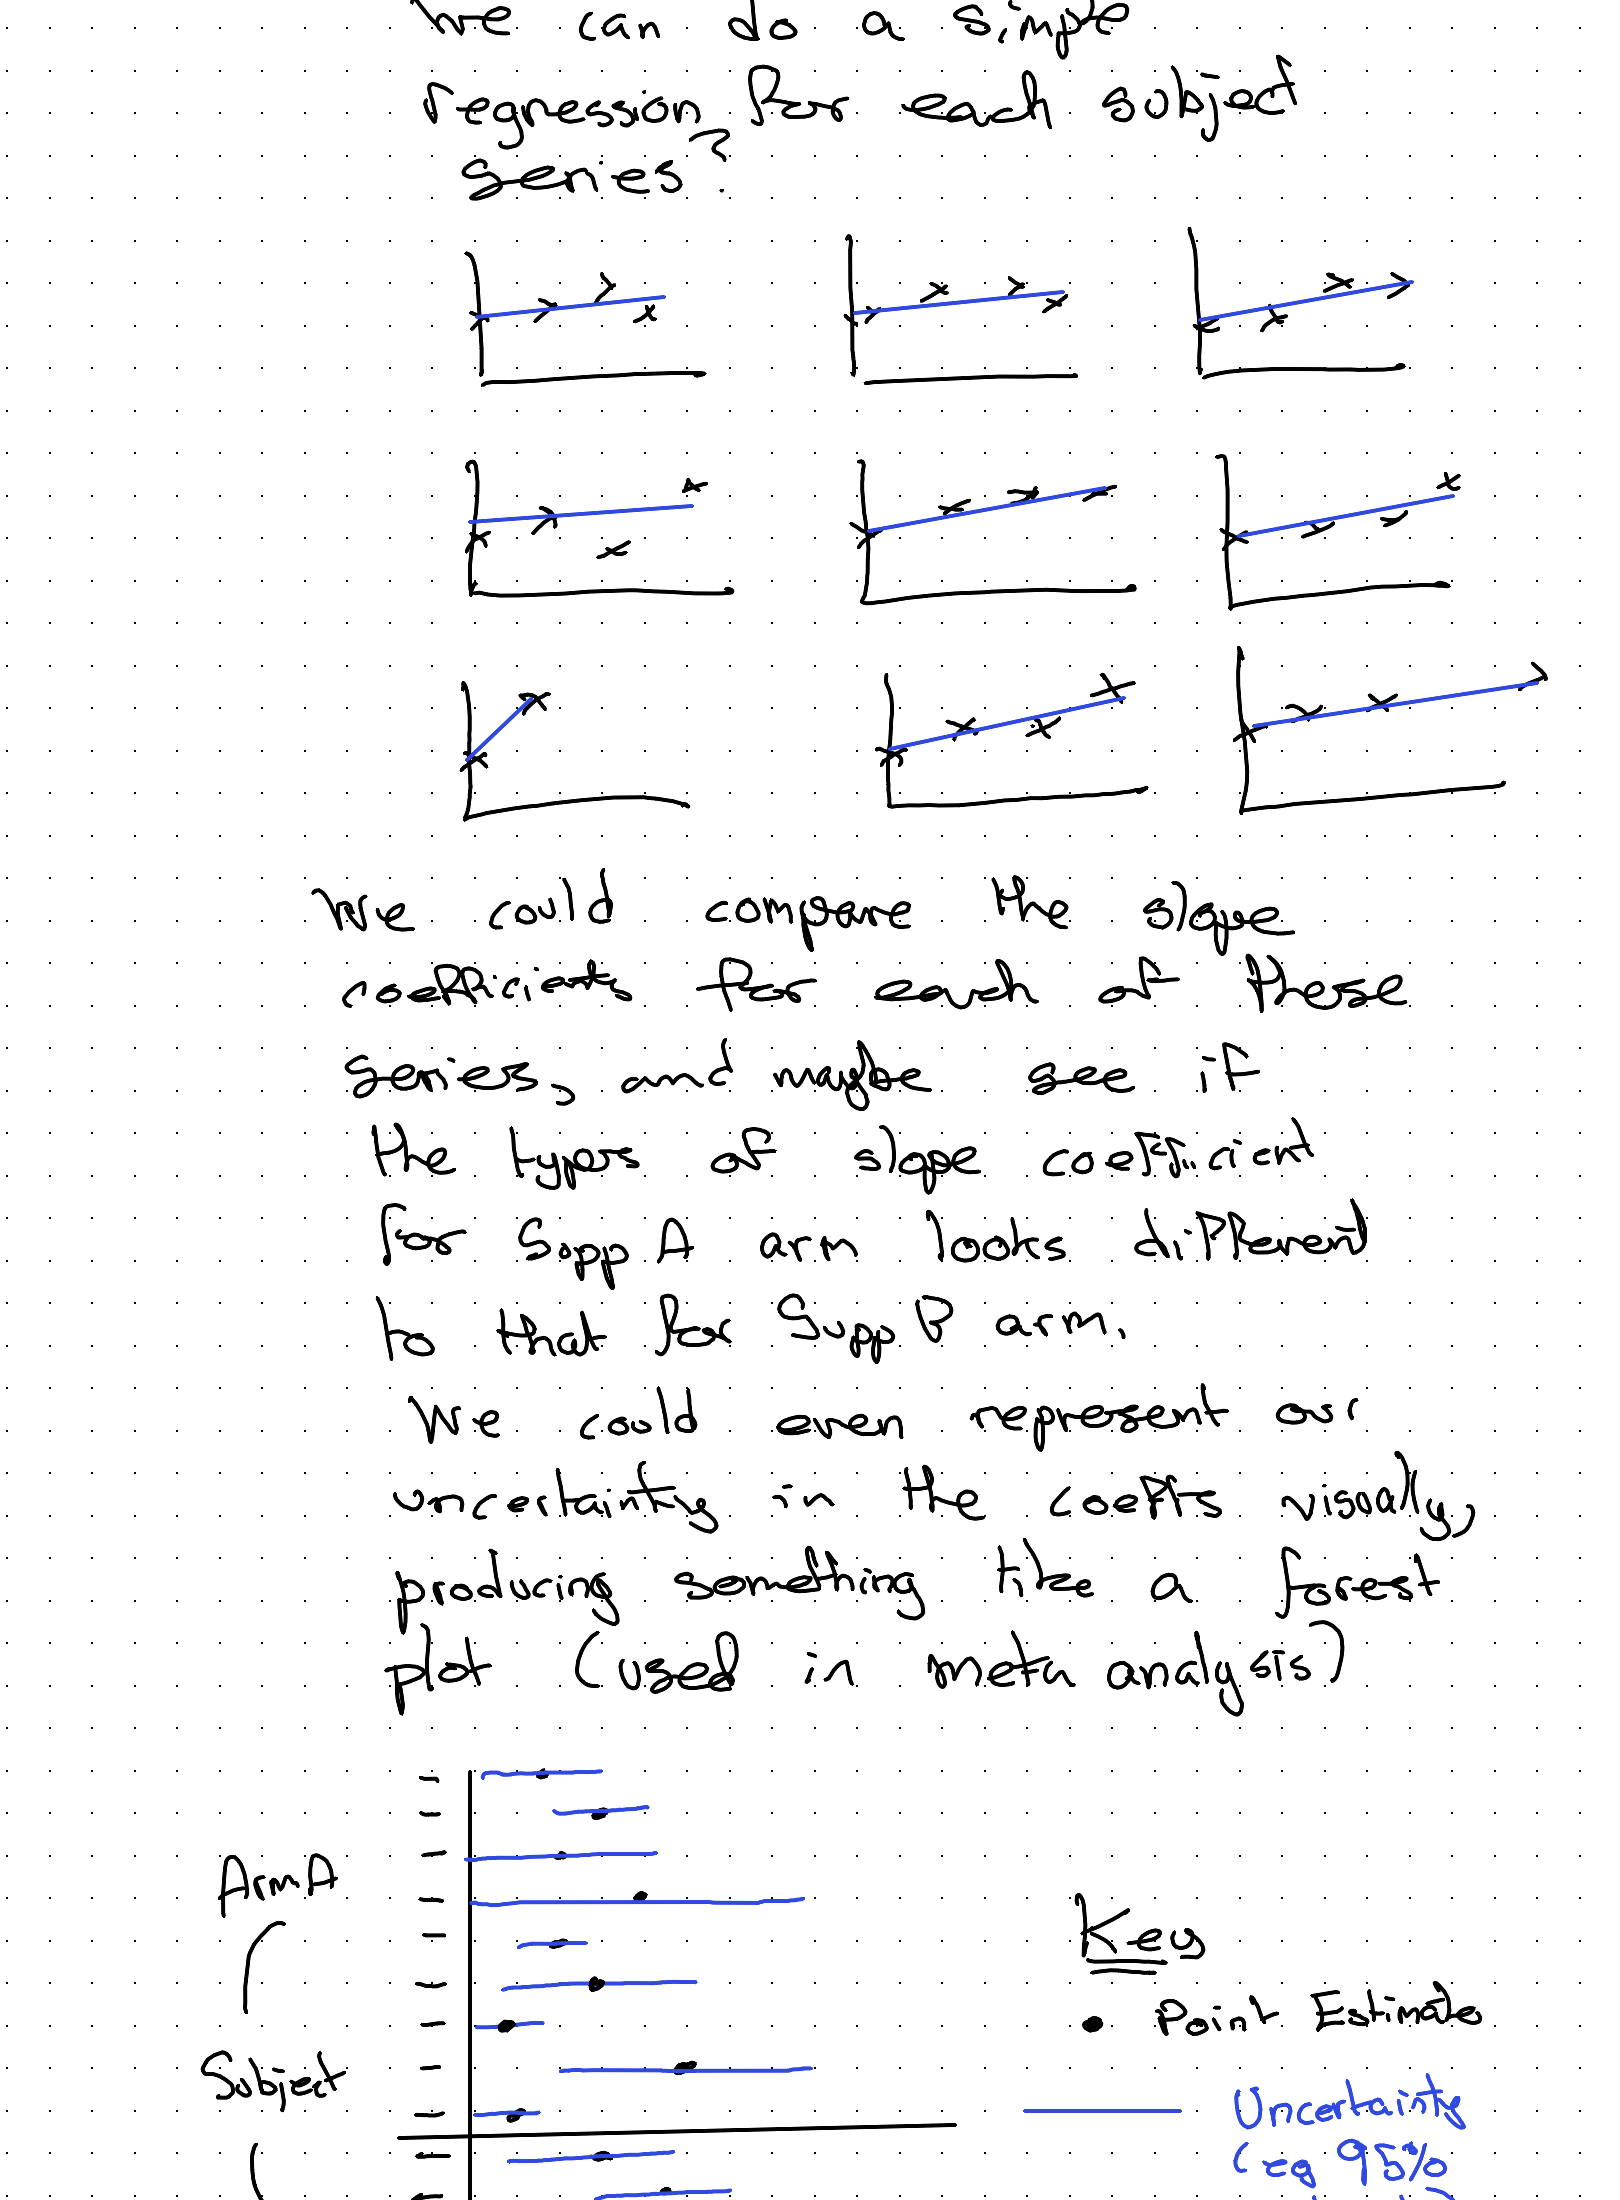 we can do a simple
regression for each subject
series?
We could compare the slope
coefficients for each of these
series, and maybe see if
the types of slope coefficient
for Supp A arm looks different
to that for Supp B arm.
We could even represent our
uncertainty in the coeffs visually,
producing something like a forest
plot (used in meta analysis)
Arm A
Key
Point Estimate
Subject
Uncertainty
(eg 95%